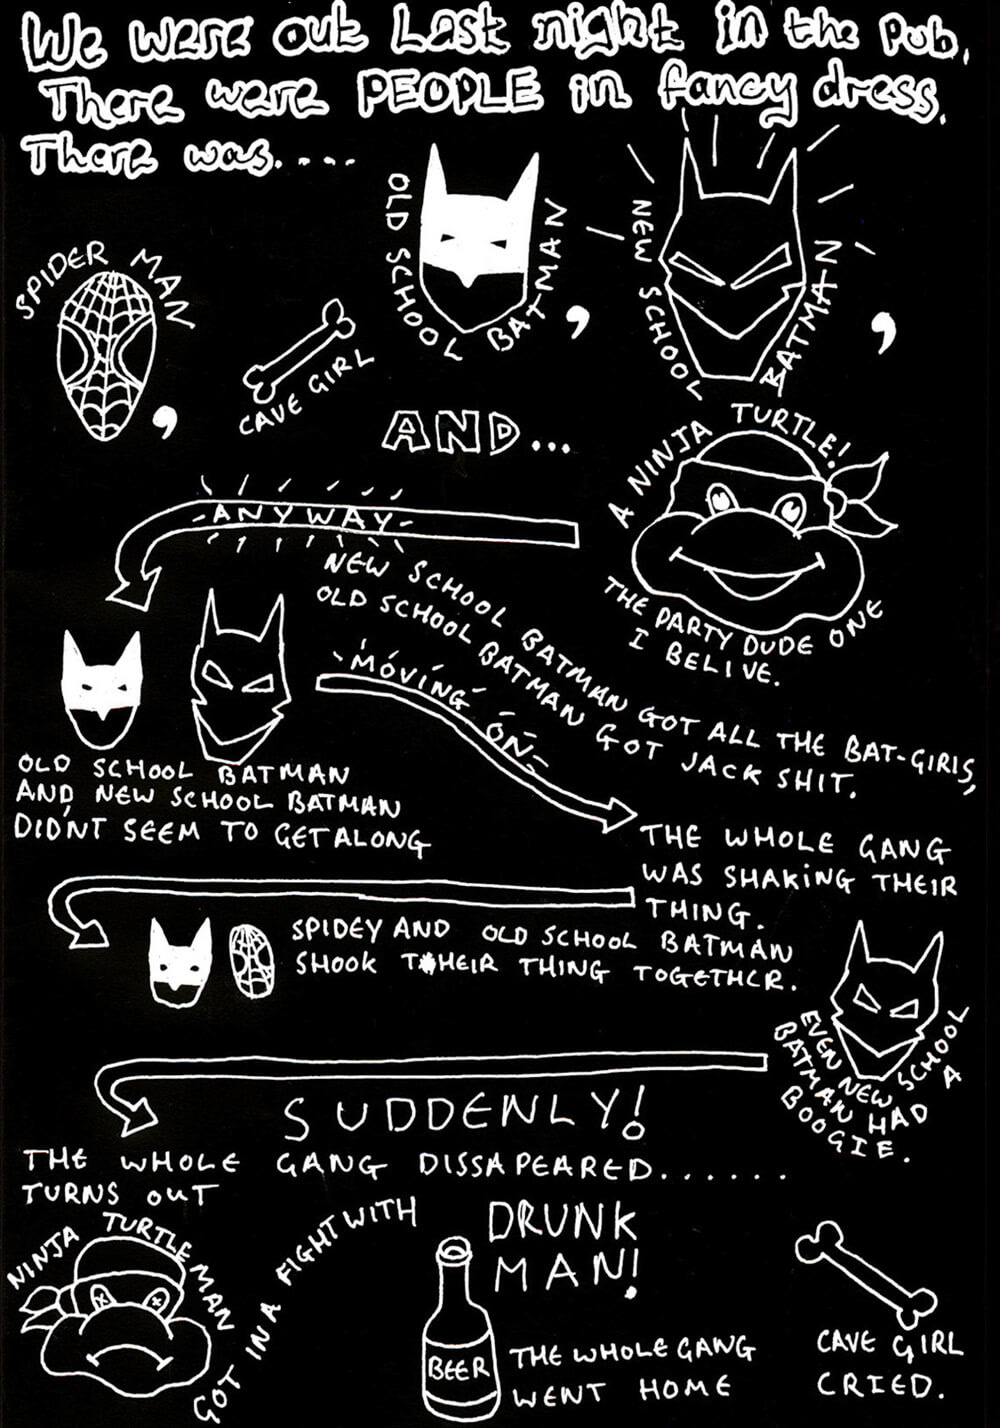 We were out Last night in the Pub.
There were PEOPLE in fancy dress.
There was.....
SPIDER MAN,
CAVE GIRL
OLD SCHOOL BATMAN,
NEW SCHOOL BATMAN,
AND...
A NINJA TURTLE!
THE PARTY DUDE ONE
I BELIVE.
ANYWAY
OLD SCHOOL BATMAN
AND NEW SCHOOL BATMAN
DID'NT SEEM TO GET ALONG
NEW SCHOOL BATMAN GOT ALL THE BAT-GIRLS,
OLD SCHOOL BATMAN GOT JACK SHIT.
MOVING ON
THE WHOLE GANG
WAS SHAKING THEIR
THING.
SPIDEY AND OLD SCHOOL BATMAN
SHOOK THEIR THING TOGETHER.
EVEN NEW SCHOOL
BATMAN HAD A
BOOGIE.
SUDDENLY!
THE WHOLE GANG DISSAPEARED.......
TURNS OUT
NINJA TURTLE MAN
GOT IN A FIGHT WITH
DRUNK
MAN!
BEER
THE WHOLE GANG
WENT HOME
CAVE GIRL
CRIED.